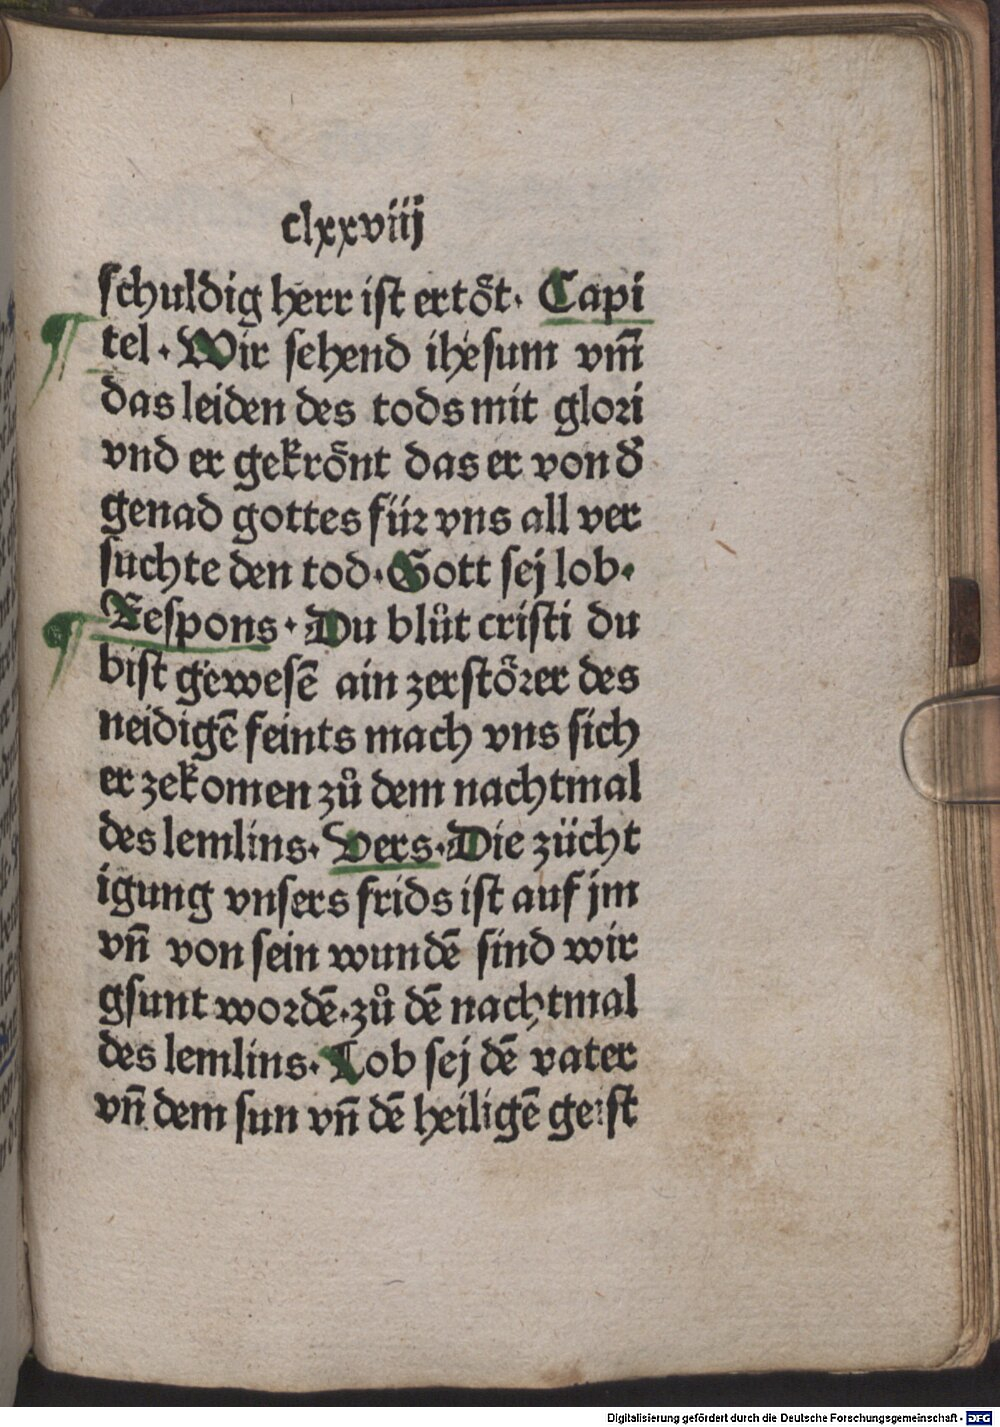 clxxviij
schuldig herr ist ertőt. Capi
tel. Wir sehend ihesum vm̄
das leiden des tods mit glori
vnd er gekrőnt das er von đ
genad gottes für vns all ver
suchte den tod. Gott sej lob.
Respons. Du blůt cristi du
bist gewesē ain zerstőrer des
neidigē feints mach vns sich
er zekomen zů dem nachtmal
des lemlins. Vers. Die zücht
igung vnsers frids ist auf jm
vn̄ von sein wundē sind wir
gsunt wordē. zů dē nachtmal
des lemlins. Lob sej dē vater
vn̄ dem sun vn̄ dē heiligē geist
Digitalisierung gefördert durch die Deutsche Forschungsgemeinschaft - DFG